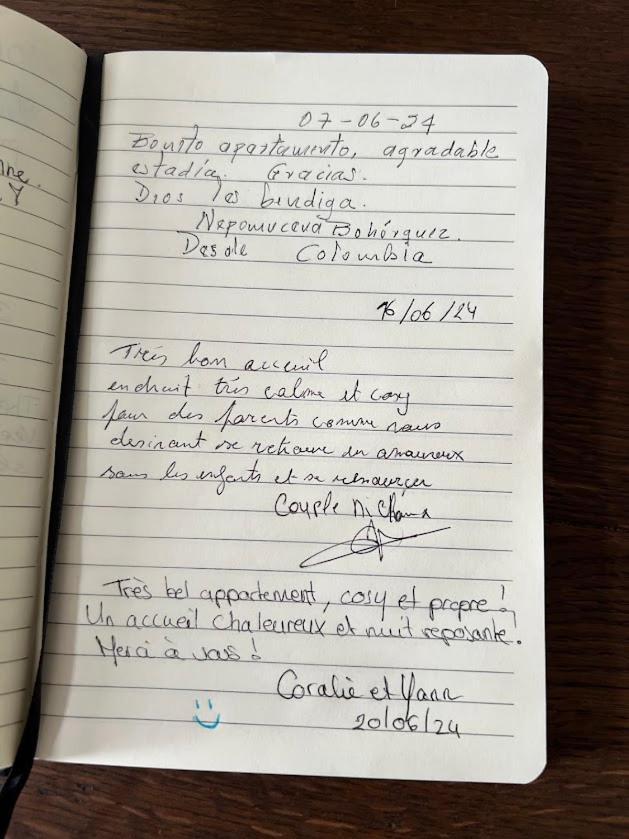 nne.
07-06-24
Bonito apartamento, agradable
estadía. Gracias.
Dios les bendiga.
Nepomuceva Bohórquez.
Desde Colombia
16/06/24
Trés bon acceuil
endruit trés calme et cosy
pour des parents comme nous
desirant se retrouve en amoureux
sans les enfants et se ressourçer
Couple
Très bel appartement, cosy et propre !
Un accueil chaleureux et nuit reposante.
Merci à vous !
Coralie et Yann
20/06/24